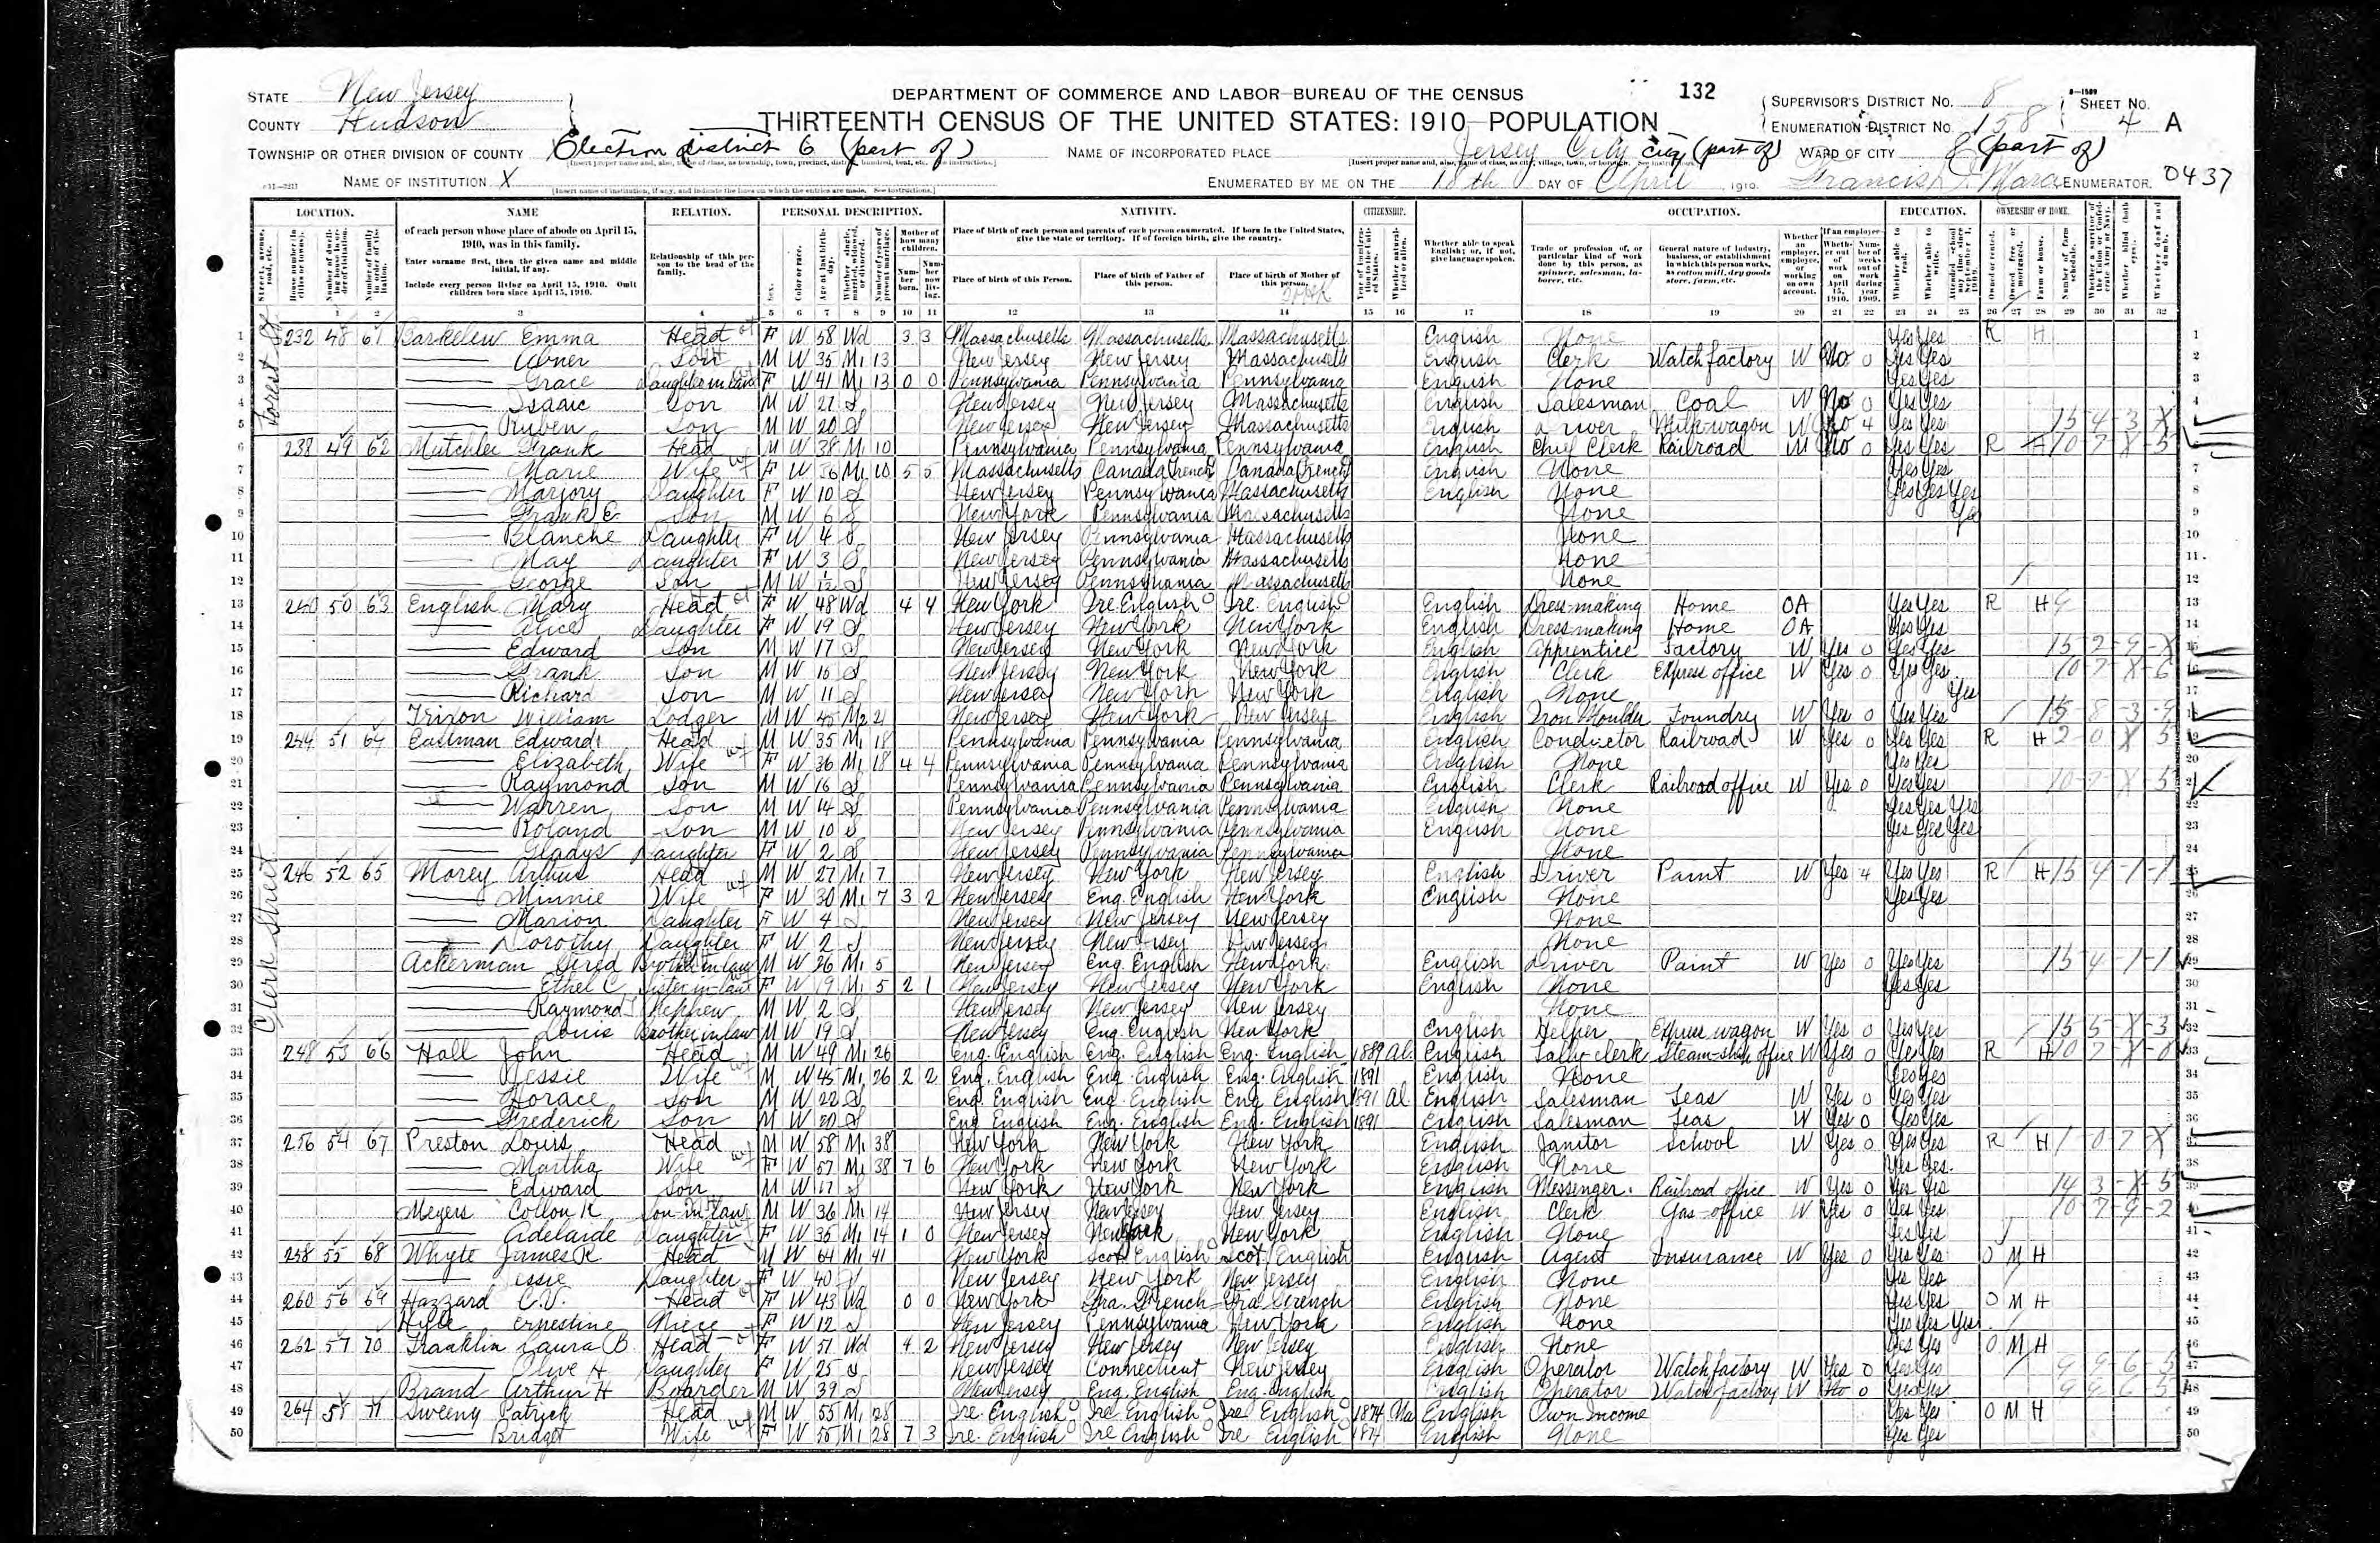 132
DEPARTMENT OF COMMERCE AND LABOR—BUREAU OF THE CENSUS
THIRTEENTH CENSUS OF THE UNITED STATES: 1910—POPULATION
STATE New Jersey
COUNTY Hudson
TOWNSHIP OR OTHER DIVISION OF COUNTY Election District 6 (part of)
NAME OF INSTITUTION X
NAME OF INCORPORATED PLACE Jersey City city (part of)
ENUMERATED BY ME ON THE 18th DAY OF April, 1910.
SUPERVISOR'S DISTRICT NO. 8
ENUMERATION DISTRICT NO. 158
SHEET NO. 4 A
WARD OF CITY 8 (part of)
Francis J. Mara ENUMERATOR.
0437
LOCATION. NAME RELATION. PERSONAL DESCRIPTION. NATIVITY. CITIZENSHIP. OCCUPATION. EDUCATION. OWNERSHIP OF HOME.
of each person whose place of abode on April 15, 1910, was in this family.
Enter surname first, then the given name and middle initial, if any.
Include every person living on April 15, 1910. Omit children born since April 15, 1910.
Relationship of this person to the head of the family.
Place of birth of each person and parents of each person enumerated. If born in the United States, give the state or territory. If of foreign birth, give the country.
Place of birth of this Person. Place of birth of Father of this person. Place of birth of Mother of this person.
Whether able to speak English; or, if not, give language spoken.
Trade or profession of, or particular kind of work done by this person, as spinner, salesman, laborer, etc.
General nature of industry, business, or establishment in which this person works, as cotton mill, dry goods store, farm, etc.
Forest St
1 232 48 61 Barkelew Emma Head F W 58 Wd 3 3 Massachusetts Massachusetts Massachusetts English None Yes Yes R H
2 Abner Son M W 35 M1 13 New Jersey New Jersey Massachusetts English Clerk Watch factory W No 0 Yes Yes
3 Grace Daughter in law F W 41 M1 13 0 0 Pennsylvania Pennsylvania Pennsylvania English None Yes Yes
4 Isaac Son M W 27 S New Jersey New Jersey Massachusetts English Salesman Coal W No 0 Yes Yes
5 Ruben Son M W 20 S New Jersey New Jersey Massachusetts English Driver Milk wagon W No 4 Yes Yes 15-4-3-X
6 238 49 62 Mutchler Frank Head M W 38 M1 10 Pennsylvania Pennsylvania Pennsylvania English Chief Clerk Railroad W No 0 Yes Yes R H 10-7-X-5
7 Marie Wife F W 36 M1 10 5 5 Massachusetts Canada French Canada French English None Yes Yes
8 Marjory Daughter F W 10 S New Jersey Pennsylvania Massachusetts English None Yes Yes Yes
9 Frank E. Son M W 6 S New York Pennsylvania Massachusetts None Yes
10 Blanche Daughter F W 4 S New Jersey Pennsylvania Massachusetts None
11 May Daughter F W 3 S New Jersey Pennsylvania Massachusetts None
12 George Son M W S New Jersey Pennsylvania Massachusetts None
13 240 50 63 English Mary Head F W 48 Wd 4 4 New York Ire. English Ire. English English Dressmaking Home OA Yes Yes R H
14 Alice Daughter F W 19 S New Jersey New York New York English Dressmaking Home OA Yes Yes
15 Edward Son M W 17 S New Jersey New York New York English Apprentice Factory W Yes 0 Yes Yes 15-2-9-X
16 Frank Son M W 15 S New Jersey New York New York English Clerk Express office W Yes 0 Yes Yes 10-7-X-6
17 Richard Son M W 11 S New Jersey New York New York English None Yes
18 William Lodger M W 45 M2 21 New Jersey New York New Jersey English Iron Moulder Foundry W Yes 0 Yes Yes 15-8-3-9
19 244 51 64 Eastman Edward Head M W 35 M1 18 Pennsylvania Pennsylvania Pennsylvania English Conductor Railroad W Yes 0 Yes Yes R H 2-0-X-5
20 Elizabeth Wife F W 36 M1 18 4 4 Pennsylvania Pennsylvania Pennsylvania English None Yes Yes
21 Raymond Son M W 16 S Pennsylvania Pennsylvania Pennsylvania English Clerk Railroad office W Yes 0 Yes Yes 10-7-X-5
22 Warren Son M W 14 S Pennsylvania Pennsylvania Pennsylvania English None Yes Yes Yes
23 Roland Son M W 10 S New Jersey Pennsylvania Pennsylvania English None Yes Yes Yes
24 Gladys Daughter F W 2 S New Jersey Pennsylvania Pennsylvania None
Clerk Street
25 246 52 65 Morey Arthur Head M W 27 M1 7 New Jersey New York New Jersey English Driver Paint W Yes 4 Yes Yes R H 15-4-1-1
26 Minnie Wife F W 30 M1 7 3 2 New Jersey Eng. English New York English None Yes Yes
27 Marion Daughter F W 4 S New Jersey New Jersey New Jersey None
28 Dorothy Daughter F W 2 S New Jersey New Jersey New Jersey None
29 Ackerman Fred Brother in law M W 26 M1 5 New Jersey Eng. English New York English Driver Paint W Yes 0 Yes Yes 15-4-1-1
30 Ethel C Sister in law F W 19 M1 5 2 1 New Jersey New Jersey New York English None Yes Yes
31 Raymond Nephew M W 2 S New Jersey New Jersey New Jersey None
32 Louis Brother in law M W 19 S New Jersey Eng. English New York English Helper Express wagon W Yes 0 Yes Yes 15-5-X-3
33 248 53 66 Hall John Head M W 49 M1 26 Eng. English Eng. English Eng. English 1889 Al. English Tally clerk Steam-ship office W Yes 0 Yes Yes R H 10-7-X-0
34 Jessie Wife M W 45 M1 26 2 2 Eng. English Eng. English Eng. English 1891 English None Yes Yes
35 Horace Son M W 22 S Eng. English Eng. English Eng. English 1891 Al. English Salesman Teas W Yes 0 Yes Yes
36 Frederick Son M W 20 S Eng. English Eng. English Eng. English 1891 English Salesman Teas W Yes 0 Yes Yes
37 256 54 67 Preston Louis Head M W 58 M1 38 New York New York New York English Janitor School W Yes 0 Yes Yes R H 1-0-7-X
38 Martha Wife F W 57 M1 38 7 6 New York New York New York English None Yes Yes
39 Edward Son M W 17 S New York New York New York English Messenger Railroad office W Yes 0 Yes Yes 14-3-X-5
40 Meyers Colton R Son-in-law M W 36 M1 14 New Jersey New Jersey New Jersey English Clerk Gas-office W Yes 0 Yes Yes 10-7-9-2
41 Adelaide Daughter F W 35 M1 14 1 0 New Jersey New York New York English None Yes Yes
42 258 55 68 Whyte James R Head M W 64 M1 41 New York Scot. English Scot. English English Agent Insurance W Yes 0 Yes Yes O M H
43 Jessie Daughter F W 40 S New Jersey New York New Jersey English None Yes Yes
44 260 56 69 Hazzard C.V. Head F W 43 Wd 0 0 New York Fra. French Fra. French English None Yes Yes O M H
45 Hille Ernestine Niece F W 12 S New Jersey Pennsylvania New York English None Yes Yes Yes
46 262 57 70 Franklin Laura B Head F W 51 Wd 4 2 New Jersey New Jersey New Jersey English None Yes Yes O M H
47 Olive H Daughter F W 25 S New Jersey Connecticut New Jersey English Operator Watch factory W Yes 0 Yes Yes 9-9-6-5
48 Brand Arthur H Boarder M W 39 S New Jersey Eng. English Eng. English English Operator Watch factory W No 0 Yes Yes 9-9-6-5
49 264 58 71 Sweeny Patrick Head M W 55 M1 28 Ire. English Ire. English Ire. English 1874 Na English Own Income Yes Yes O M H
50 Bridget Wife F W 55 M1 28 7 3 Ire. English Ire. English Ire. English 1874 English None Yes Yes